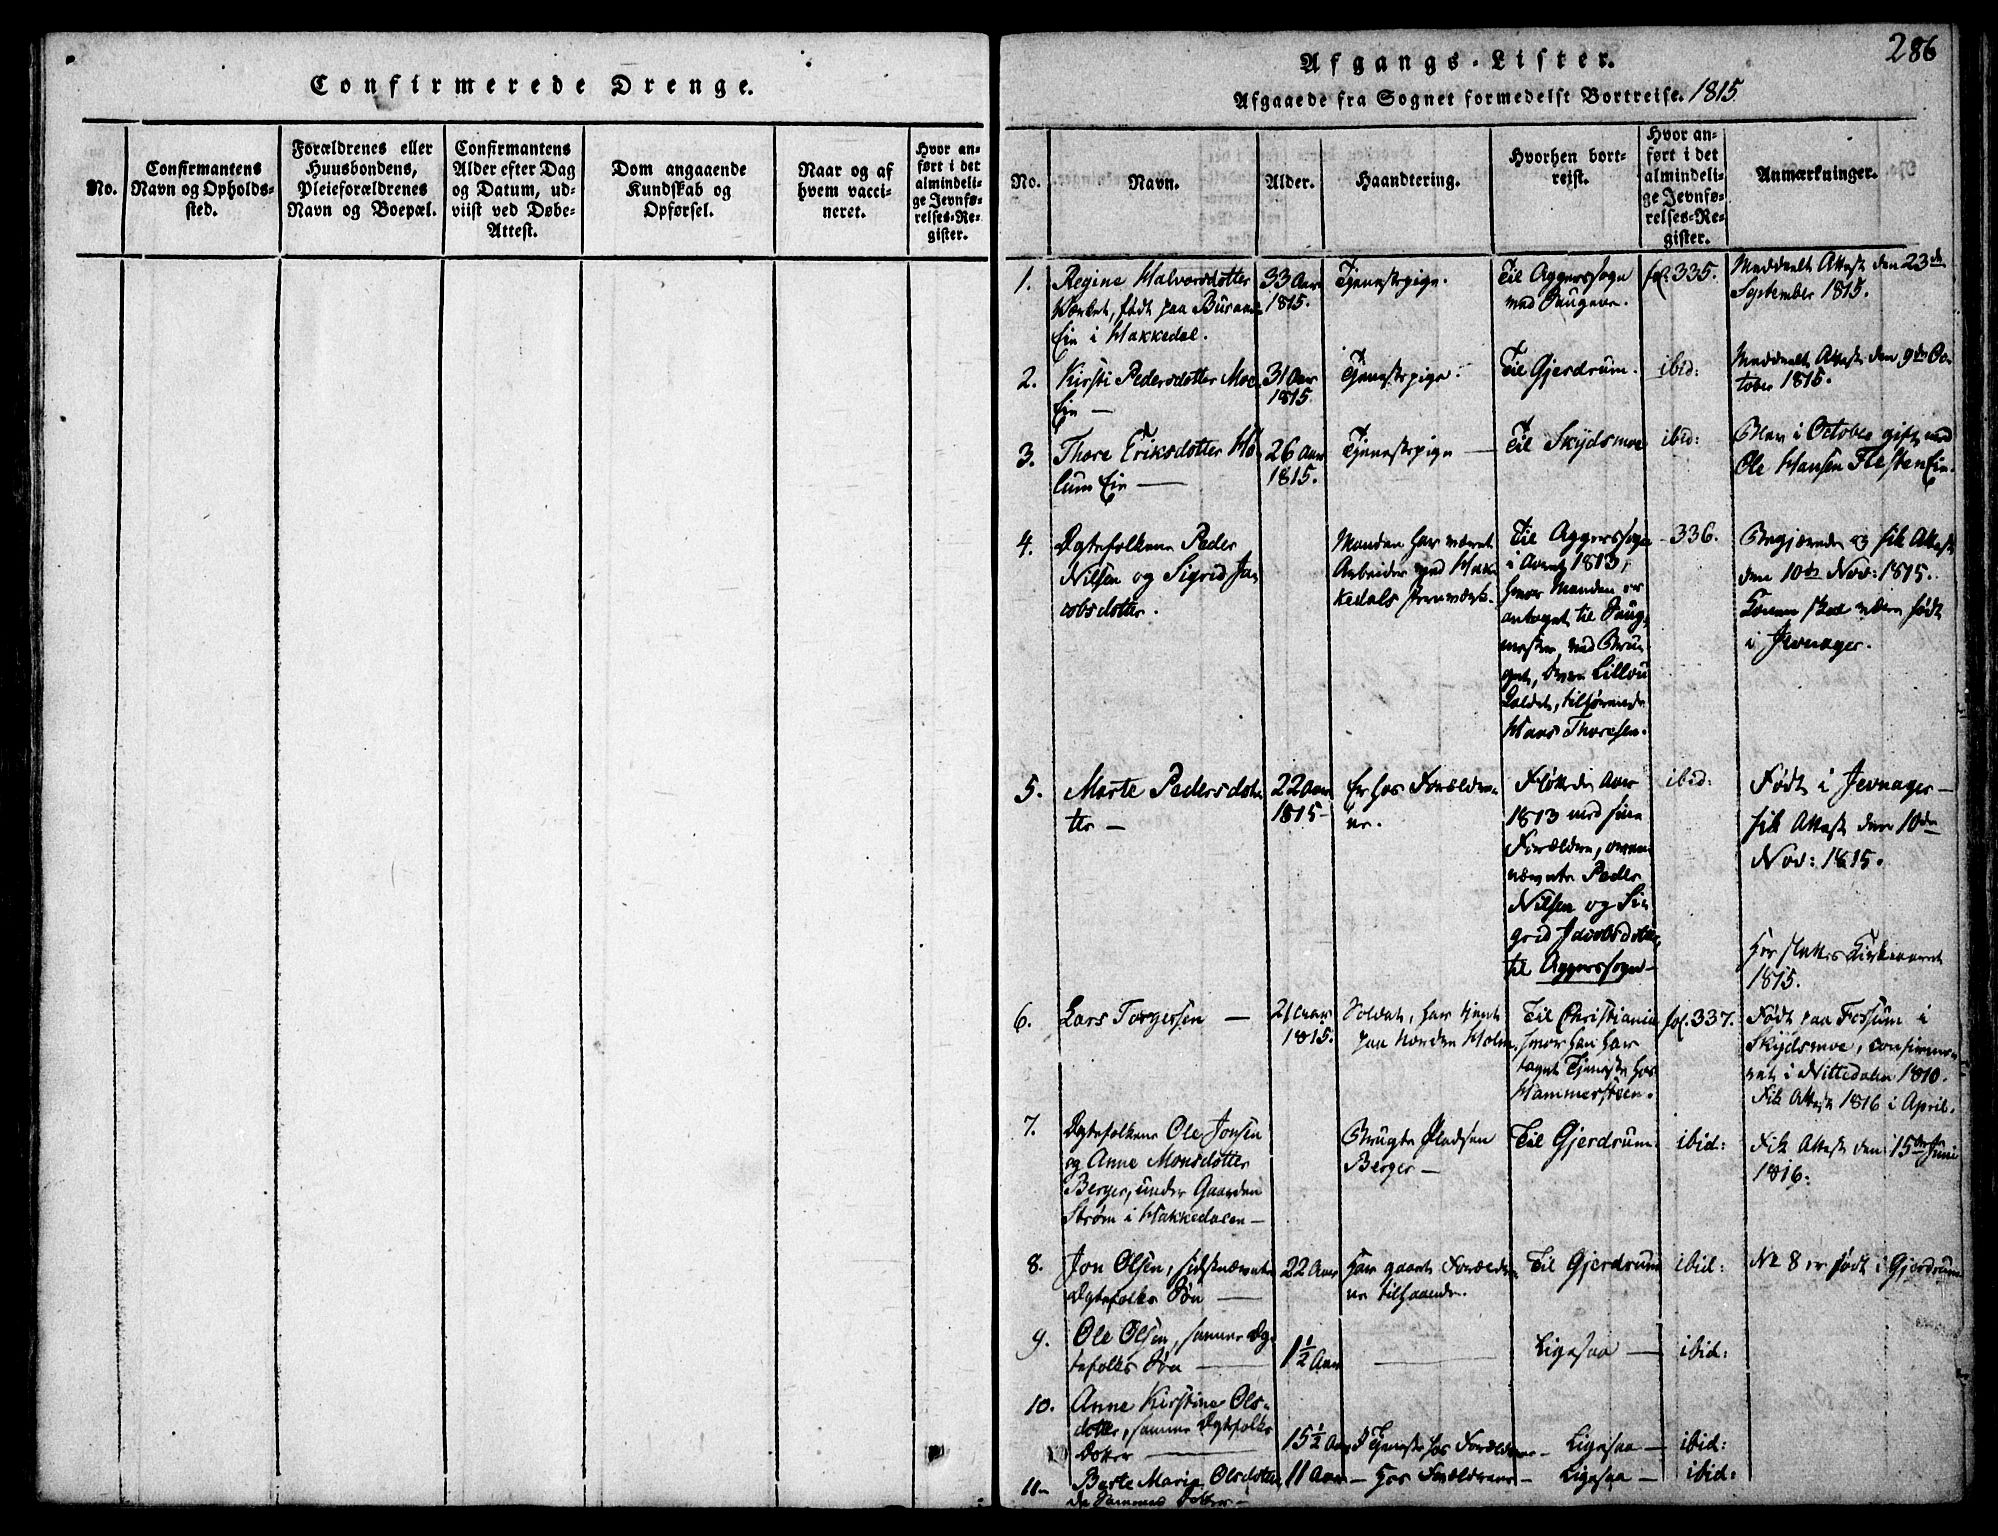 Confirmerede Drenge.
No.
Confirmantens
Navn og Opholds-
sted.
Forældrenes eller
Huusbondens,
Pleieforældrenes
Navn og Boepæl.
Confirmantens
Alder efter Dag
og Datum, ud-
viist ved Døbe-
Attest.
Dom angaaende
Kundskab og
Opførsel.
Naar og af
hvem vacci-
neret.
Hvor an-
ført i det
almindeli-
ge Jevnfø-
relses-Re-
gister.
286
Afgangs-Lister.
Afgaaede fra Sognet formedelst Bortreise. 1815
No.
Navn.
Alder.
Haandtering.
Hvorhen bort-
reist.
Hvor an-
ført i det
almindeli-
ge Jevnfø-
relses-Re-
gister.
Anmærkninger.
1.
Regine Halvorsdotter
Værket, født paa
Eie i Hakkedal.
33 Aar
1815.
Tjenestepige.
Til Aggerssogn
fol. 335.
Meddeelt Attest den 23de
September 1815.
2.
Kirsti Pedersdotter Moe
Eie —
31 Aar
1815.
Tjenestepige.
Til Gjerdrum.
ibid:
Meddeelt Attest den 9de Oc-
tober 1815.
3.
Thore Eriksdotter Ho-
lum Eie —
26 Aar
1815.
Tjenestepige —
Til Skydsmoe
ibid:
Blev i October gift med
Ole Hansen Flesten Eie.
4.
Ægtefolkene Peder
Nilsen og Sigrid Ja-
cobsdotter.
Manden har været
Arbeider ved Hak-
kedals Jernværk.
Til Aggerssogn
i Aaret 1813,
hvor Manden er
antaget til Saug-
mester ved Bru-
get, Lillou
kaldet, tilhørende
Hans Thoresen.
- 336.
Begjærede og fik Attest
den 10de Nov: 1815.
Konen skal være født
i Jevnager.
5.
Marte Pedersdot-
ter —
22 Aar
1815 -
Er hos Forældre-
ne.
Fløttede Aar
1813 med sine
Forældre, oven-
nævnte Peder
Nilsen og Si-
grid Jacobsdotter,
til Aggerssogn —
ibid:
Født i Jevnager —
fik Attest den 10de
Nov: 1815.
Her sluttes Kirkeaaret
1815.
6.
Lars Torgersen —
21 Aar
1815.
Soldat, har tjent
paa Nordre Holm
Til Christiania
hvor han har
taget Tjeneste hos
Hammersteen.
fol. 337.
Født paa Fossum i
Skydsmoe, confirme-
ret i Nittedalen 1810.
Fik Attest 1816 i April.
7.
Ægtefolkene Ole Jonsen
og Anne Monsdotter
Berger, under Gaarden
Strøm i Hakkedalen —
Brugte Pladsen
Berger —
Til Gjerdrum.
ibid:
Fik Attest den 15de Juni
1816.
8.
Jon Olsen, sidstnævnte
Ægtefolks Søn —
22 Aar
Har gaaet Forældre-
ne tilhaande.
Til Gjerdrum
ibid:
No 8 er født i Gjerdrum
9.
Ole Olsen, samme Æg-
tefolks Søn —
1 1/2 Aar
—
Ligesaa —
ibid:
10.
Anne Kirstine Ols-
dotter, samme Ægtefolks
Dotter —
15 1/2 Aar
I Tjeneste hos Forældrene —
Ligesaa —
ibid:
11 -
Berte Marie Olsdotter
de Sammes Dotter —
11 Aar
— Hos Forældrene —
Ligesaa —
ibid: